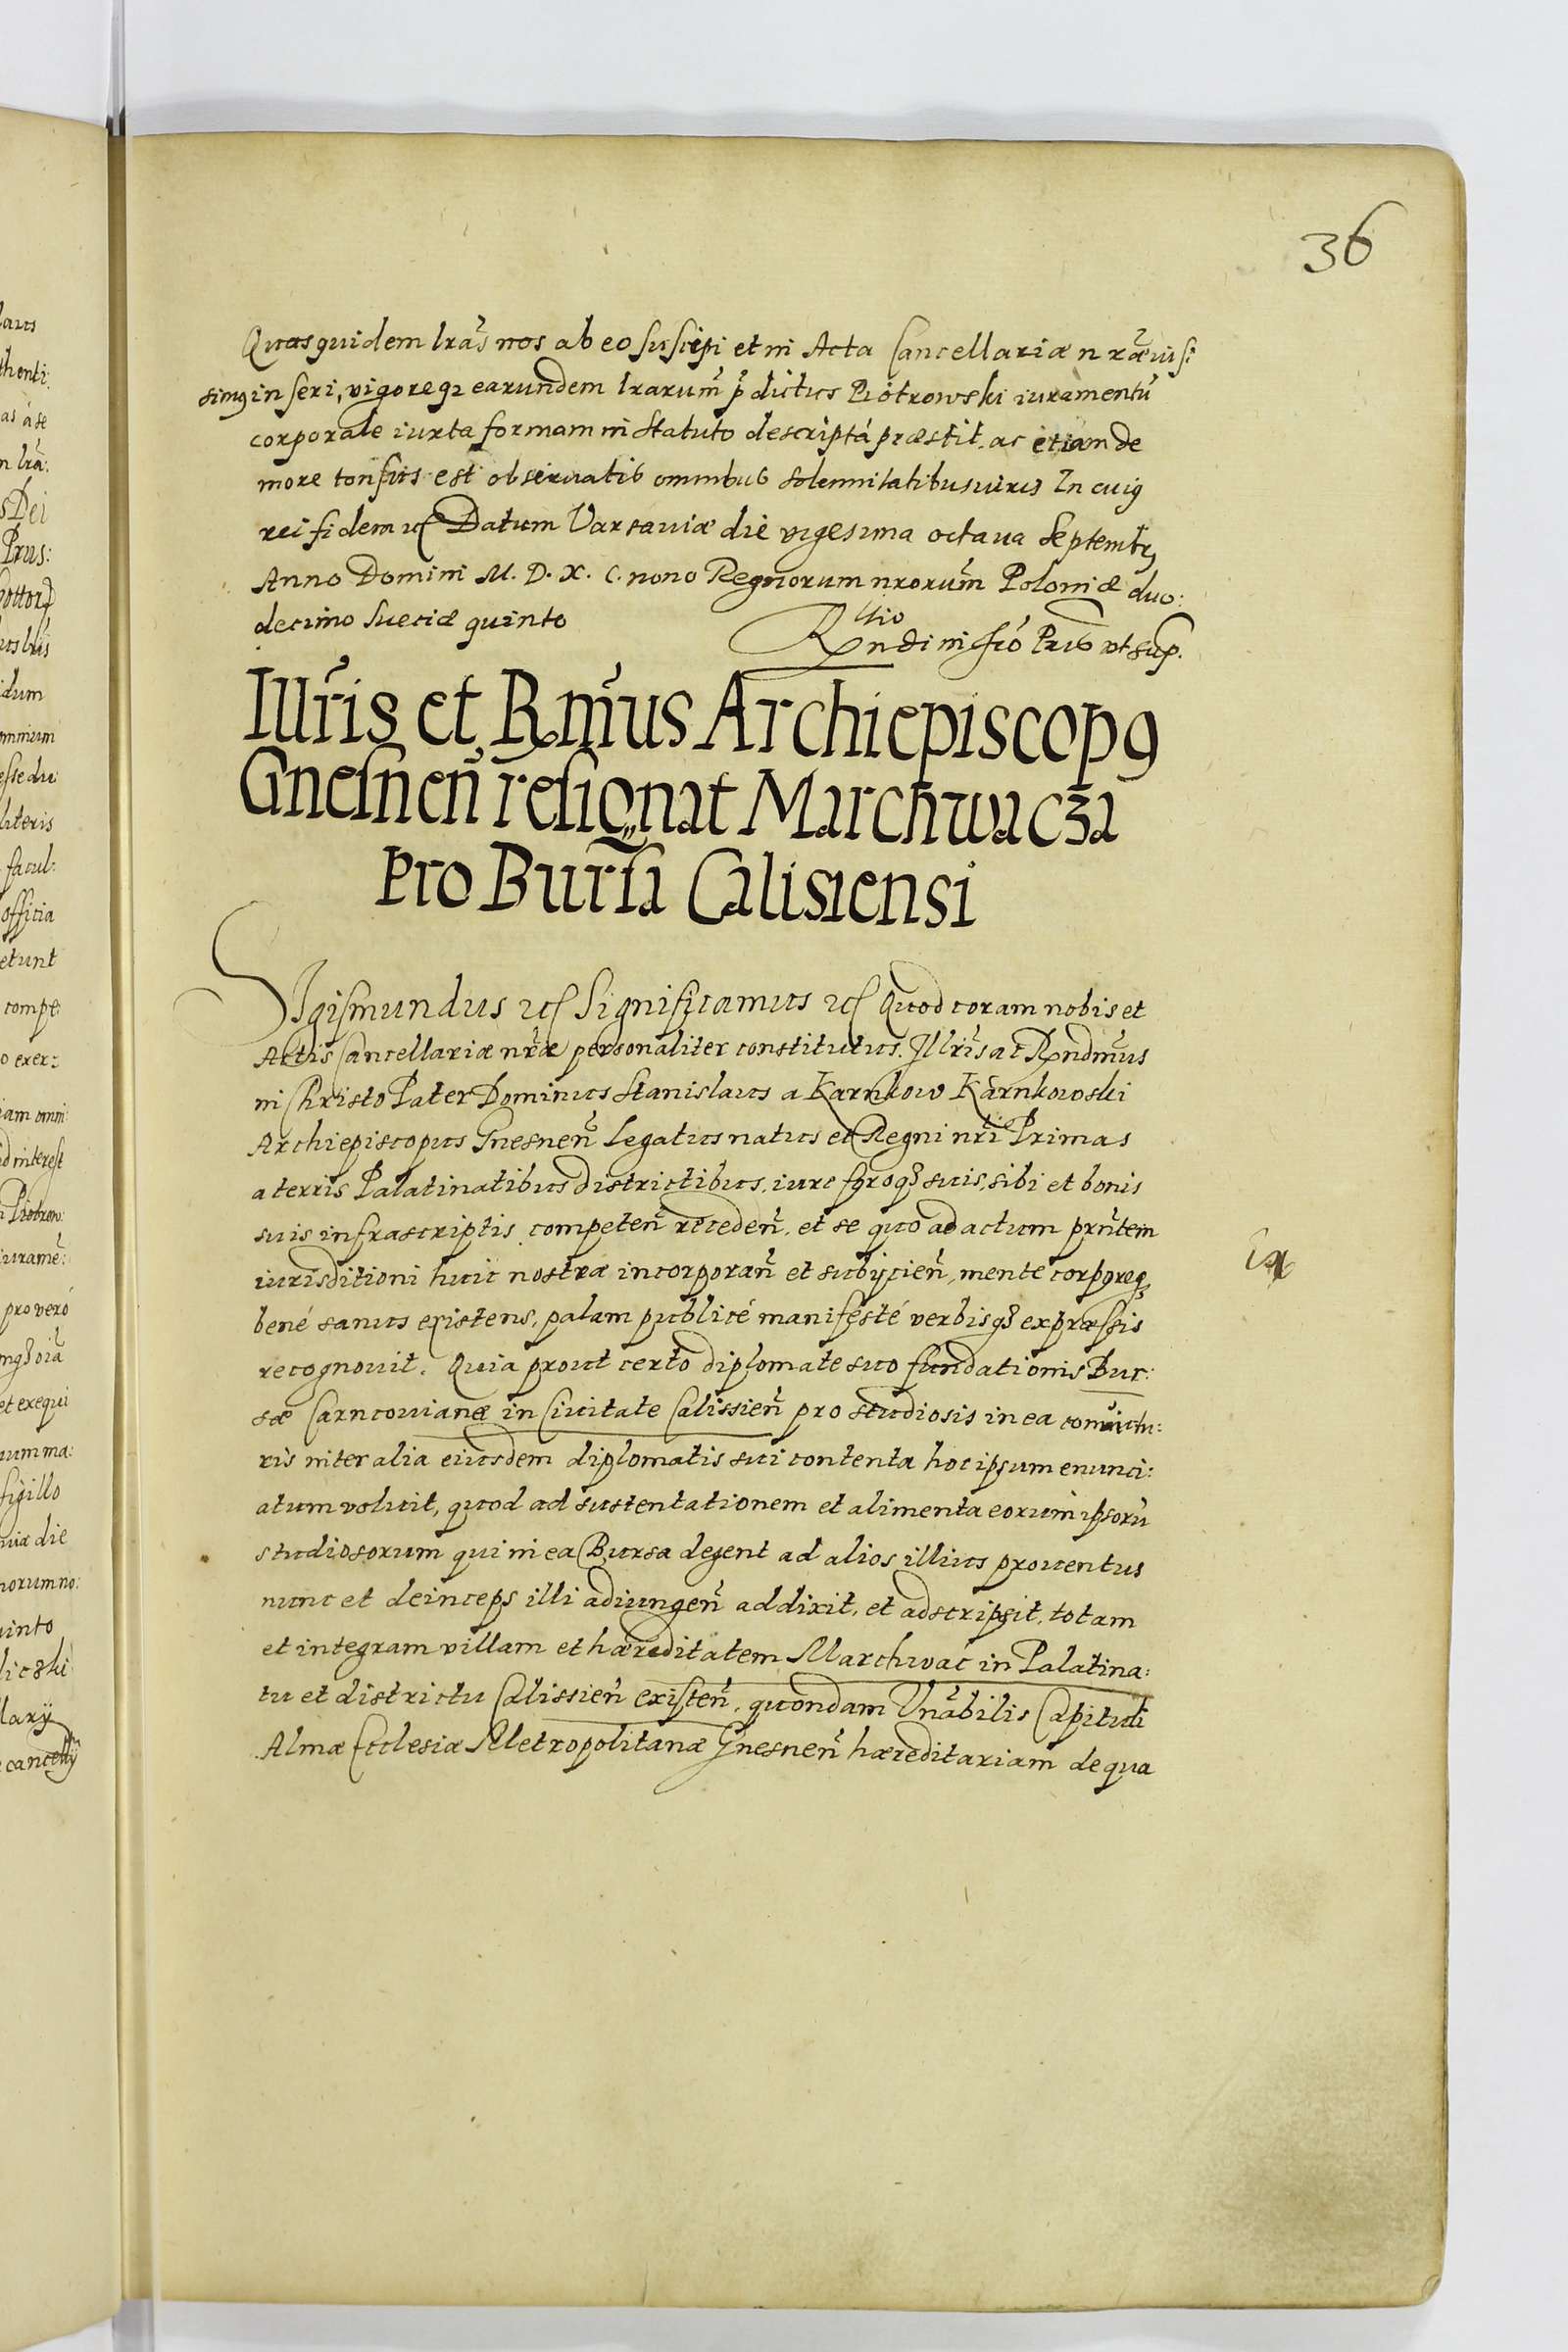 36
Quas quidem lrãs nos ab eo suscipi et in Acta Cancellariæ nrǽ iussi:
simꝰ inseri, vigoreqꝫ earundem lrarum̃ p̃dictus Piotrowski iuramentũ
corporale iuxta formam in statuto descriptá præstit. ac etiam de
more tonsus est obseruatis omnibus solennitatibus iuris In cuiꝰ
rei fidem ꝛc Datum Varsauiæ die vigesima octaua Septembrꝭ
Anno Domini M. D. X. C. nono Regnorum nrorum̃ Poloniæ duo:
decimo Sueciæ quinto
Rndi in Prıs vt sup.
Illr̃is et Rm̃us Archiepiscopꝰ
Gnesnen̄ resignat Marchwacza
Pro Bursa Calisiensi
SIgismundus ꝛc Significamus ꝛc Quod coram nobis et
Actis Cancellariæ nr̃æ personaliter constitutus. Illr̃is ac Rndm̃us
in Christo Pater Dominus Stanislaus a Karnkow Karnkowski
Archiepiscopus Gnesnen̄ Legatus natus et Regni nr̃i Primas
a terris Palatinatibus districtibus, iure foroqꝫ suis, sibi et bonis
suis infrascriptis competen̄ receden̄. et se quo ad actum prñtem
iurisditioni huic nostræ incorporan̄ et subijcien̄, mente corporeqꝫ
bené sanus existens, palam publicé manifesté verbisqꝫ expræssis
recognouit. Quia prout certo diplomate suo fundationis Bur:
sæ Carncouianæ in Ciuitate Calissien̄ pro studiosis in ea conuictu:
ris inter alia eiusdem diplomatis sui contenta hoc ipsum enunci:
atum voluit, quod ad sustentationem et alimenta eorum ipsorũ
studiosorum qui in ea Bursa degent ad alios illius prouentus
nunc et deinceps illi adiungen̄ addixit, et adscripsit, totam
et integram villam et hæreditatem Marchwać in Palatina:
tu et districtu Calissien̄ existen̄, quondam Vnãbilis Capituli
Almæ Ecclesiæ Metropolitanæ Gnesnen̄ hæreditariam de qua